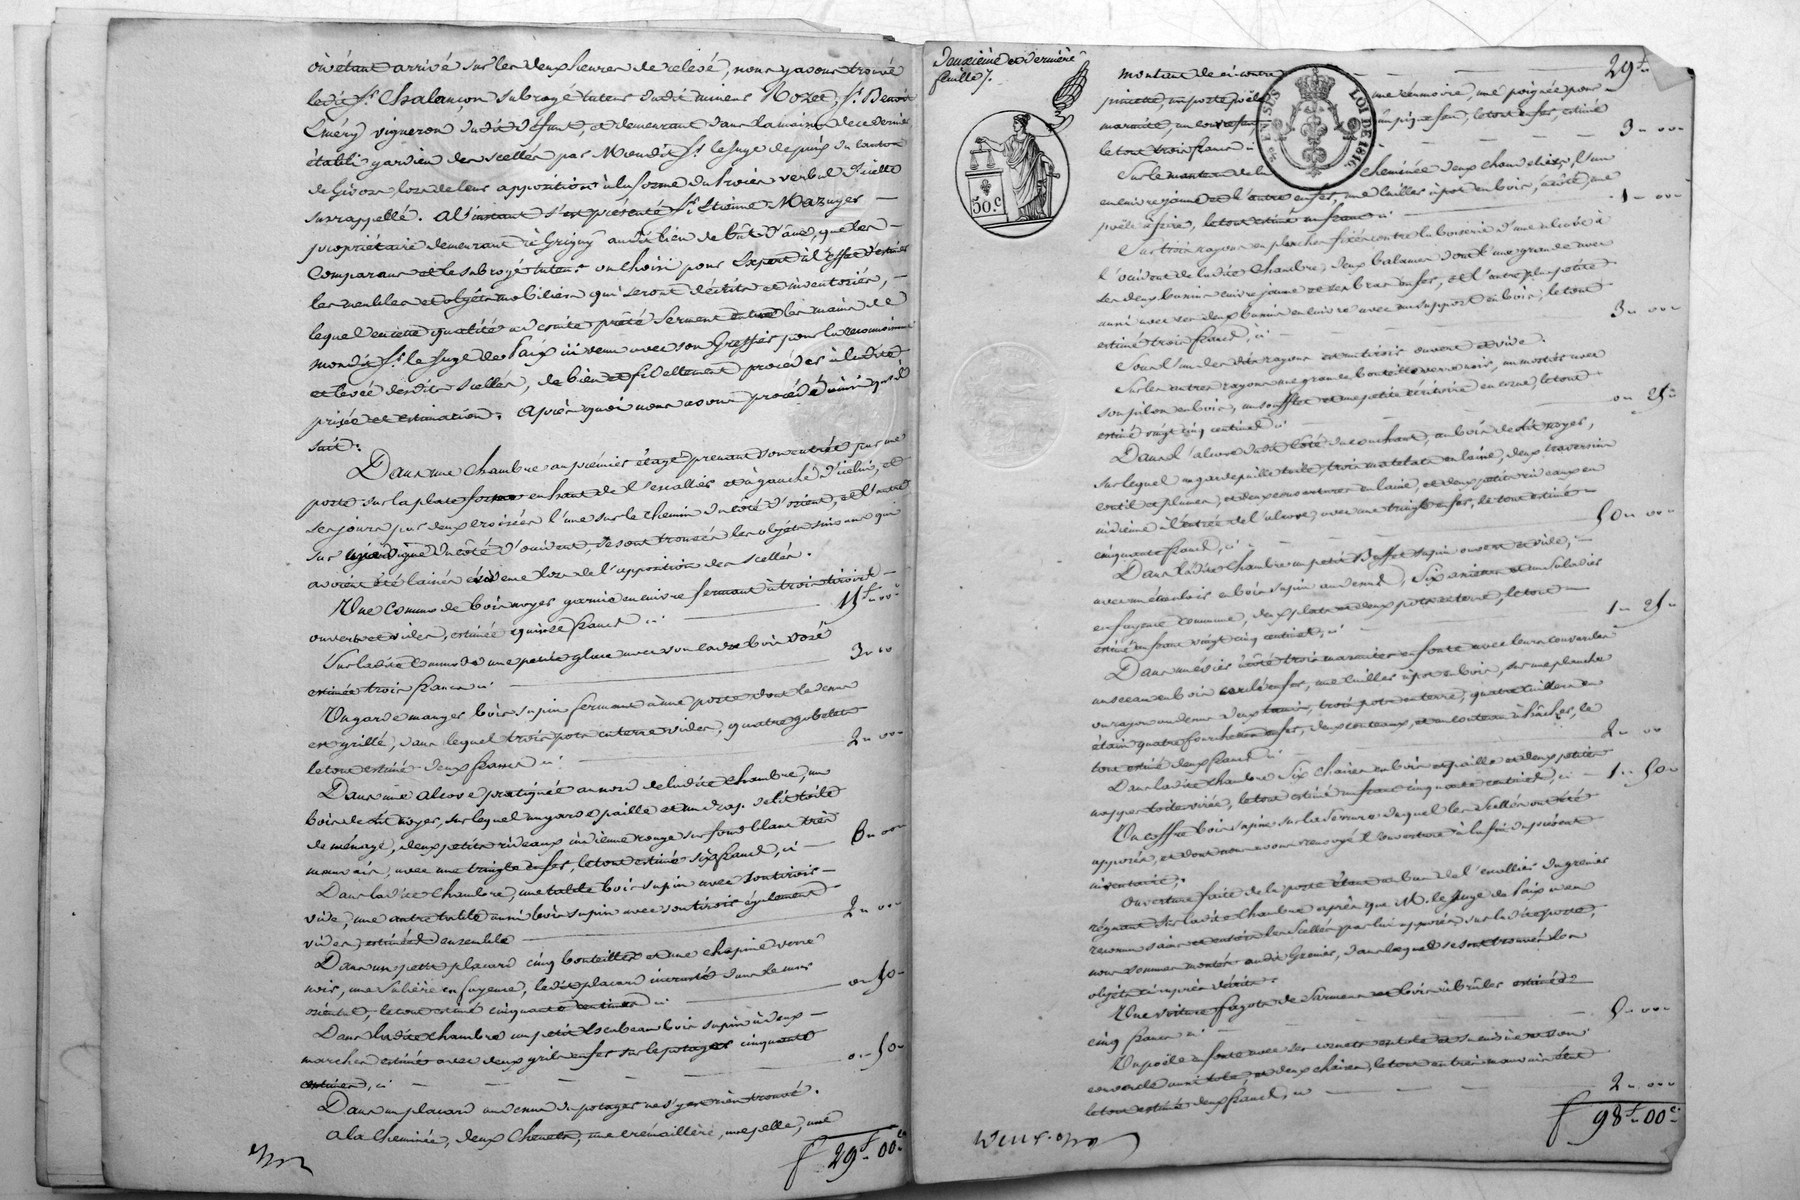 où étant arrivé sur les deux heures de relevé, nous y avons trouvé
ledit Sr. Chalançon subrogé tuteur dudit mineur Rozet, Sr. Benoit
vigneron dudit défunt, et demeurant dans la maison de ce dernier
établi gardien des scellés par Mondit Sr. le Juge de paix du canton
de Givors, lors de leur apposition à la forme du procès verbal d'icelle
susrappellé. à l'instant s'est présenté Sr. Etienne Mazuyer
propriétaire demeurant à Grigny audit lieu de que les
comparans et le subrogé tuteur ont choisi pour Expert à l'effet d'estimer
les meubles et objets mobiliers qui seront décrits et inventoriés,
lequel en cette qualité a de suite prêté serment entre les mains de
mondit Sr. le Juge de Paix ici venu avec son Greffier pour la reconnoissance
et levée desdits scellés, de bien et fidellement procéder à ladite
prisée et estimation. Après quoi nous avons procédé ainsi qu'il
suit:
Dans une chambre au prémier étage, prenant son entrée par une
porte sur la plate forme en haut de l'escallier et à gauche d'icelui, et
ses jours par deux croisées l'une sur le chemin du côté d'orient, et l'autre
sur une vigne du côté d'occident, se sont trouvés les objets suivans qui
avoient été laissés en évidence lors de l'apposition des scellés.
Une commode bois noyer garnie en cuivre fermant à trois tiroirs
ouverts et vides, estimée quinze francs ci 15f " 00c
Sur ladite commode une petite glace avec son cadre bois doré
estimée trois francs ci 3 " 00
Un garde manger bois sapin fermant à une porte dont le dessus
est grillé, dans lequel trois pots en terre vides, quatre gobelets
le tout estimé deux francs ci 2 " 00
Dans une alcove pratiquée au nord de ladite chambre, un
bois de lit noyer, sur lequel un garde paille et un drap de lit toile
de ménage, deux petits rideaux indienne rouge sur fond blanc très
mauvais, avec une tringle en fer, le tout estimé six francs, ci 6 " 00
Dans ladite chambre, une table bois sapin avec son tiroir
vide, une autre table aussi bois sapin avec son tiroir également
vides, estimées ensemble 2 " 00
Dans un petit placard cinq bouteilles et une chopine verre
noir, une salière en fayence, ledit placard incrusté dans le mur
oriental, le tout estimé cinquante centimes ci 0 " 50
Dans ladite chambre un petit escabeau bois sapin à deux
marches estimés avec deux grils en fer sur le potager cinquante
centimes, ci 0 " 50
Dans un placard au dessus du potager ne s'y est rien trouvé.
à la cheminée, deux chenets, une crémaillère, une pelle, une
f 29f " 00c
Deuxième et dernière
feuille /.
50.c
LOI DE 1816
montant de ci contre 29f "
pincette, un porte poële, une rérmoire, une poignée pour
marmite, un en fer, le tout en fer, estimé
le tout trois francs ci 3 " 00
Sur le manteau de la cheminée deux chandeliers, l'un
en cuivre jaune et l'autre en fer, une cuiller à pot en bois, à côté, une
poële à frire, le tout estimé un franc ci 1 " 00
Sur trois rayons en plancher fixés contre la boiserie d'une alcove à
l'occident de ladite chambre, deux balances dont l'une grande avec
ses deux bassins cuivre jaune et ses bras en fer, et l'autre plus petite
aussi avec ses deux bassins en cuivre avec un support en bois, le tout
estimé trois francs, ci 3 " 00
Sous l'un desdits rayons est un tiroir ouvert et vide.
Sur les autres rayons une grande bouteille verre noir, un mortier avec
son pilon en bois, un soufflet et une petite écritoire en corne, le tout
estimé vingt cinq centimes ci 0 " 25
Dans l'alcove du côté du couchant, un bois de lit noyer,
sur lequel un garde paille toile, trois matelats en laine, deux traversins
coutil et plumes, et deux couvertures en laine, et deux petits rideaux en
indienne à l'entrée de l'alcove, avec une tringle en fer, le tout estimé
cinquante francs, ci 50 " 00
Dans ladite chambre un petit Buffet sapin ouvert et vide,
avec un étendoir en bois sapin au dessus, six assiettes et un saladier
en fayence commune, deux plats et deux pots en terre, le tout
estimé un franc vingt cinq centimes, ci 1 " 25
Dans un évier à côté trois marmites en fonte avec leurs couvercles
un sceau en bois cerclé en fer, une cuiller à pot en bois, sur une planche
ou rayon au dessus deux trois pots en terre, quatre cuillers en
étain quatre fourchettes en fer, deux couteaux, et un couteau à hâcher, le
tout estimé deux francs ci 2 " 00
Dans ladite chambre six chaises en bois et paille et deux petites
nappes toile cirée, le tout estimé un franc cinquante centimes, ci 1 " 50
Un coffre bois sapin sur la serrure duquel les scellés ont été
apposés, et dont nous avons renvoyé l'ouverture à la fin du présent
inventaire.
Ouverture faite de la porte étant au bas de l'escallier du grenier
régnant sur ladite chambre après que M. le Juge de Paix en a
reconnu sains et entiers les scellés par lui apposés sur ladite porte,
nous sommes montés audit Grenier, dans lequel se sont trouvés les
objets ci après décrits:
Une voiture fagots de sarmens et bois à brûler estimée
cinq francs ci 5 " 00
Un poële en fonte avec ses cornets en tole et sa marmite et son
couvercle aussi tole, et deux chaises, le tout en très mauvais état
le tout estimé deux francs, ci 2 " 00
f 98f " 00c